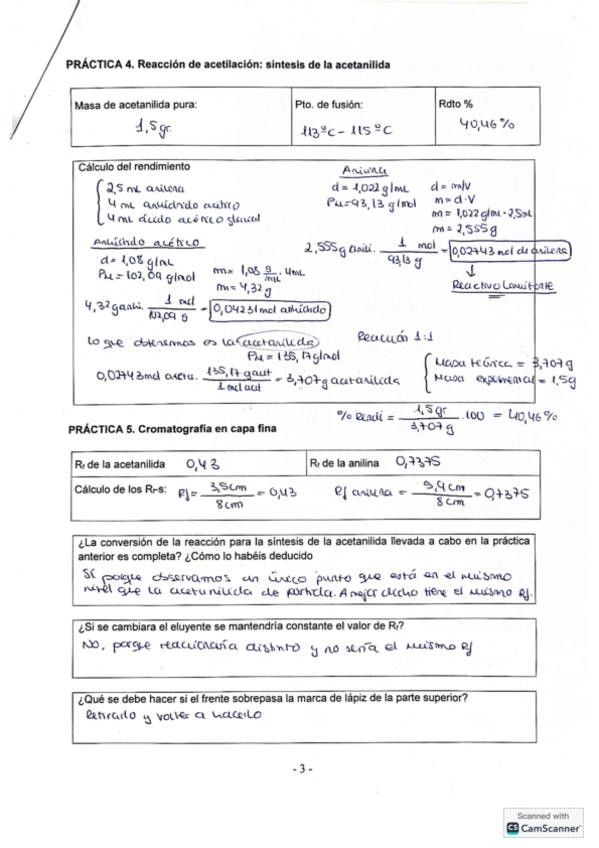 PRÁCTICA 4. Reacción de acetilación: síntesis de la acetanilida
Masa de acetanilida pura:
1,5gr.
Pto. de fusión:
113ºC - 115ºC
Rdto %
40,46%
Cálculo del rendimiento
2,5 mL anilina
4 mL anhídrido acético
4 mL ácido acético glacial
Anilina
d = 1,022 g/mL
PM = 93,13 g/mol
d = m/V
m = d·V
m = 1,022 g/mL · 2,5mL
m = 2,555g
Anhídrido acético
d = 1,08 g/mL
PM = 102,09 g/mol
m = 1,08 g/mL · 4mL
m = 4,32g
2,555g anili. 1 mol / 93,13 g = 0,02743 mol de anilina
↓
Reactivo Limitante
4,32 g anhi. 1 mol / 102,09 g = 0,04231 mol anhídrido
Lo que obtenemos es la acetanilida
PM = 135,17 g/mol
Reacción 1:1
0,02743 mol aceta. 135,17 g acet / 1 mol acet = 3,707 g acetanilida
Masa teórica = 3,707g
Masa experimental = 1,5g
% Rendi = 1,5gr / 3,707g · 100 = 40,46%
PRÁCTICA 5. Cromatografía en capa fina
Rf de la acetanilida 0,43
Rf de la anilina 0,7375
Cálculo de los Rf-s: Rf = 3,5cm / 8cm = 0,43
Rf anilina = 5,9cm / 8cm = 0,7375
¿La conversión de la reacción para la síntesis de la acetanilida llevada a cabo en la práctica
anterior es completa? ¿Cómo lo habéis deducido
Sí porque observamos un único punto que está en el mismo
nivel que la acetanilida de partida. A mejor dicho tiene el mismo Rf.
¿Si se cambiara el eluyente se mantendría constante el valor de Rf?
No, porque reaccionaría distinto y no sería el mismo Rf
¿Qué se debe hacer si el frente sobrepasa la marca de lápiz de la parte superior?
Retirarlo y volver a hacerlo
- 3 -
Scanned with
CS CamScanner